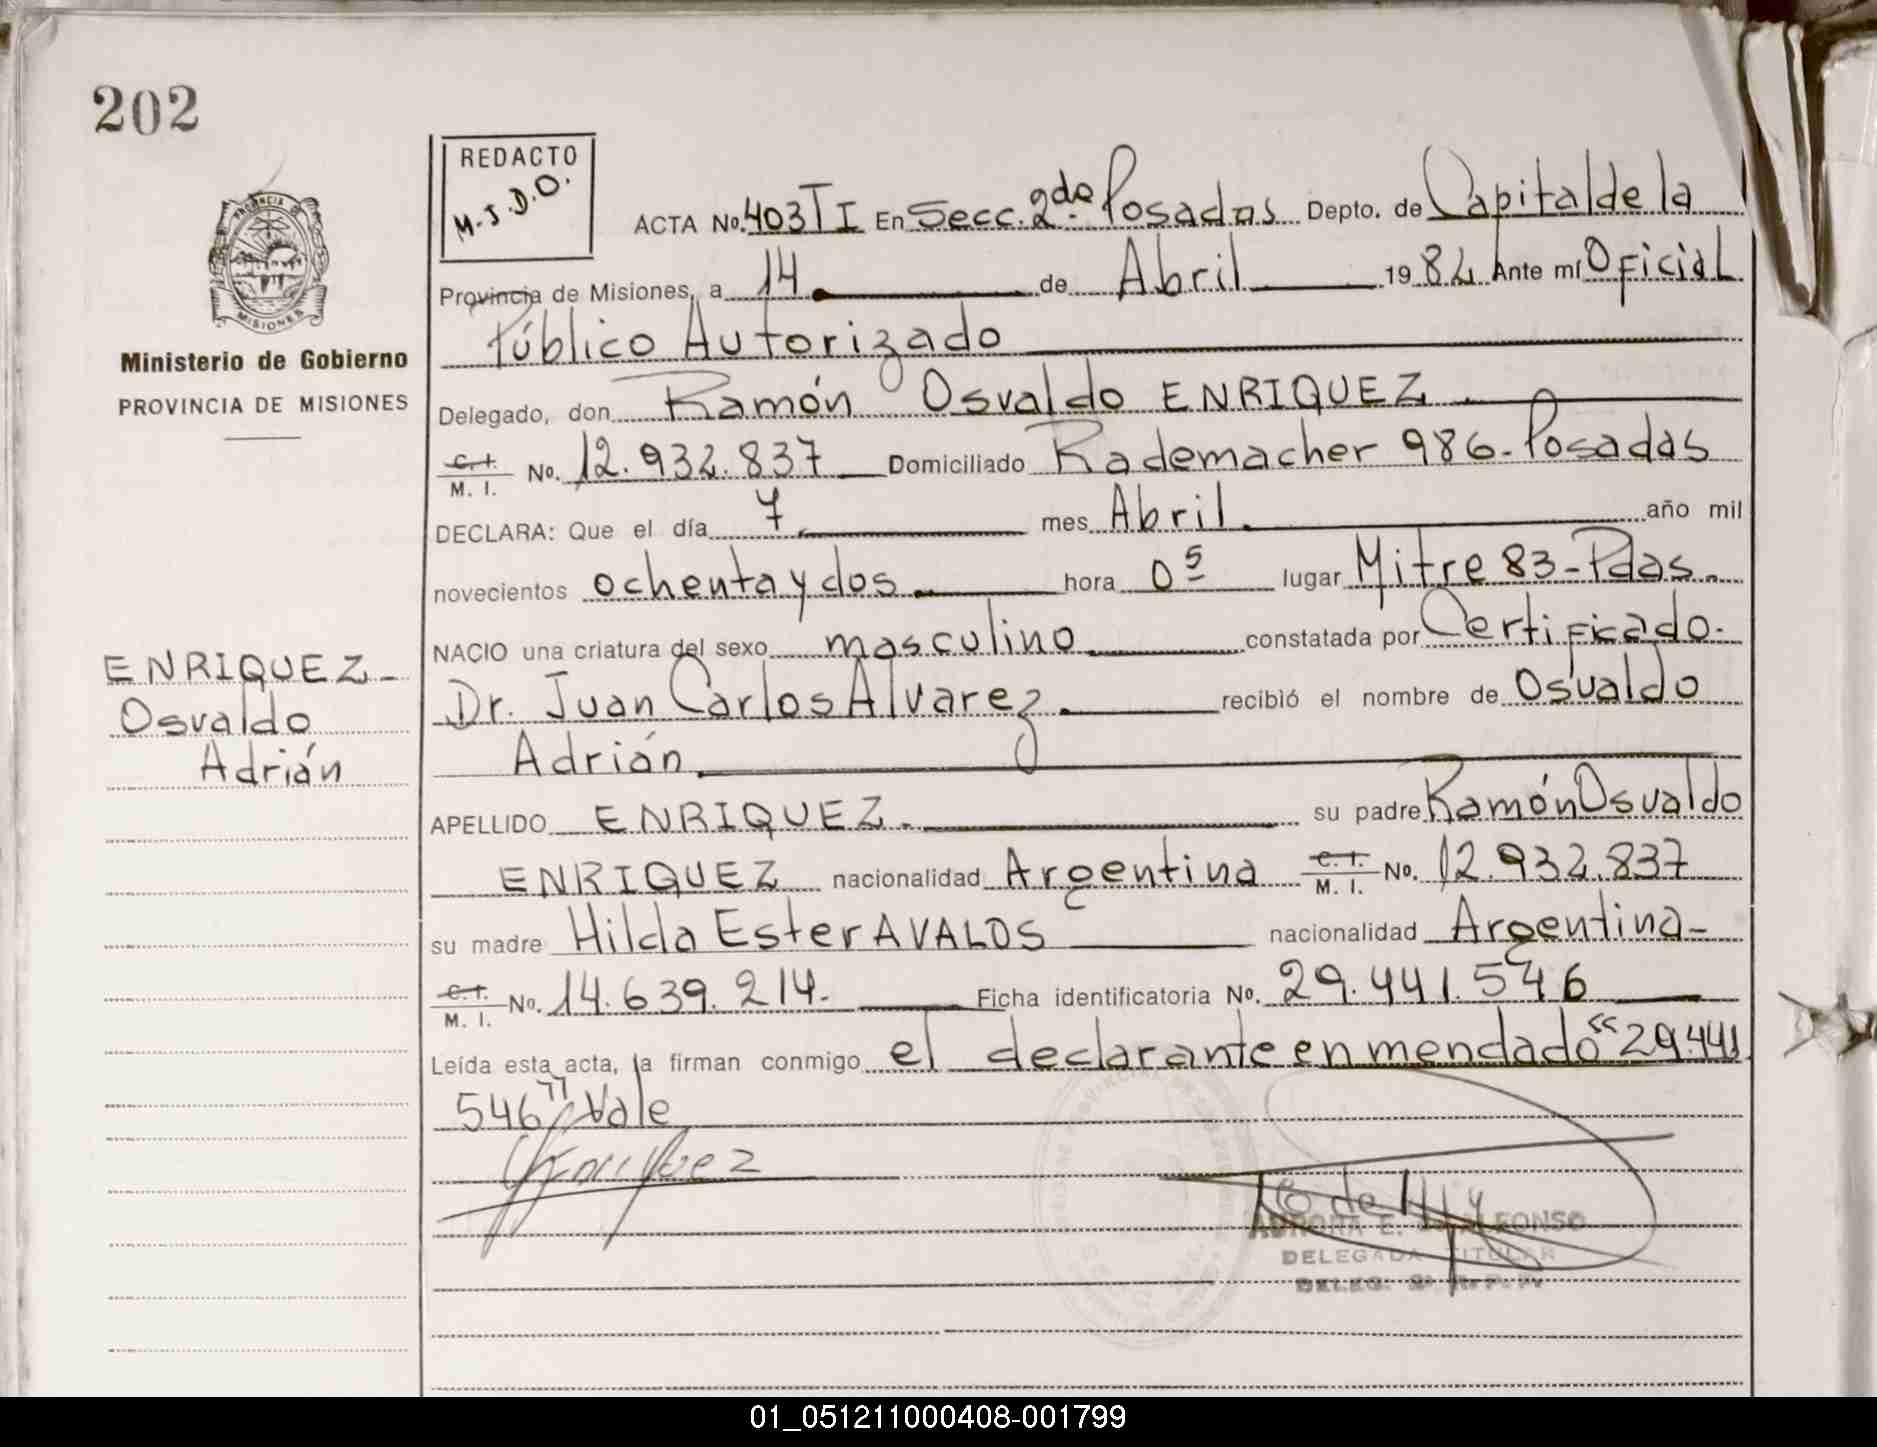 202
REDACTO
M.J.D.O.
ACTA No. 403 TI En Secc. 2da. Posadas Depto. de Capital de la
Provincia de Misiones, a 14 de Abril 1982 Ante mí Oficial
Público Autorizado
Delegado, don Ramón Osvaldo ENRIQUEZ
C.I. M. I. No. 12.932.837 Domiciliado Rademacher 986-Posadas
DECLARA: Que el día 7 mes Abril año mil
novecientos ochenta y dos hora 0 5 lugar Mitre 83-Pdas.
NACIO una criatura del sexo masculino constatada por Certificado.
Dr. Juan Carlos Alvarez recibió el nombre de Osvaldo
Adrián
APELLIDO ENRIQUEZ. su padre Ramón Osvaldo
ENRIQUEZ nacionalidad Argentina C.I. M. I. No. 12.932.837
su madre Hilda Ester AVALOS nacionalidad Argentina-
C.I. M. I. No. 14.639.214. Ficha identificatoria No. 29.441.546
Leída esta acta, la firman conmigo el declarante enmendado "29.441
546" Vale
Enriquez
DELEGADA TITULAR
PROVINCIA DE
MISIONES
Ministerio de Gobierno
PROVINCIA DE MISIONES
ENRIQUEZ-
Osvaldo
Adrián
01_051211000408-001799